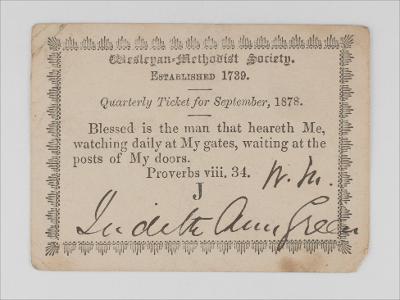 Wesleyan-Methodist Society.
ESTABLISHED 1739.
Quarterly Ticket for September, 1878.
Blessed is the man that heareth Me,
watching daily at My gates, waiting at the
posts of My doors.
Proverbs viii. 34.
W. M.
J
Judith Ann Green